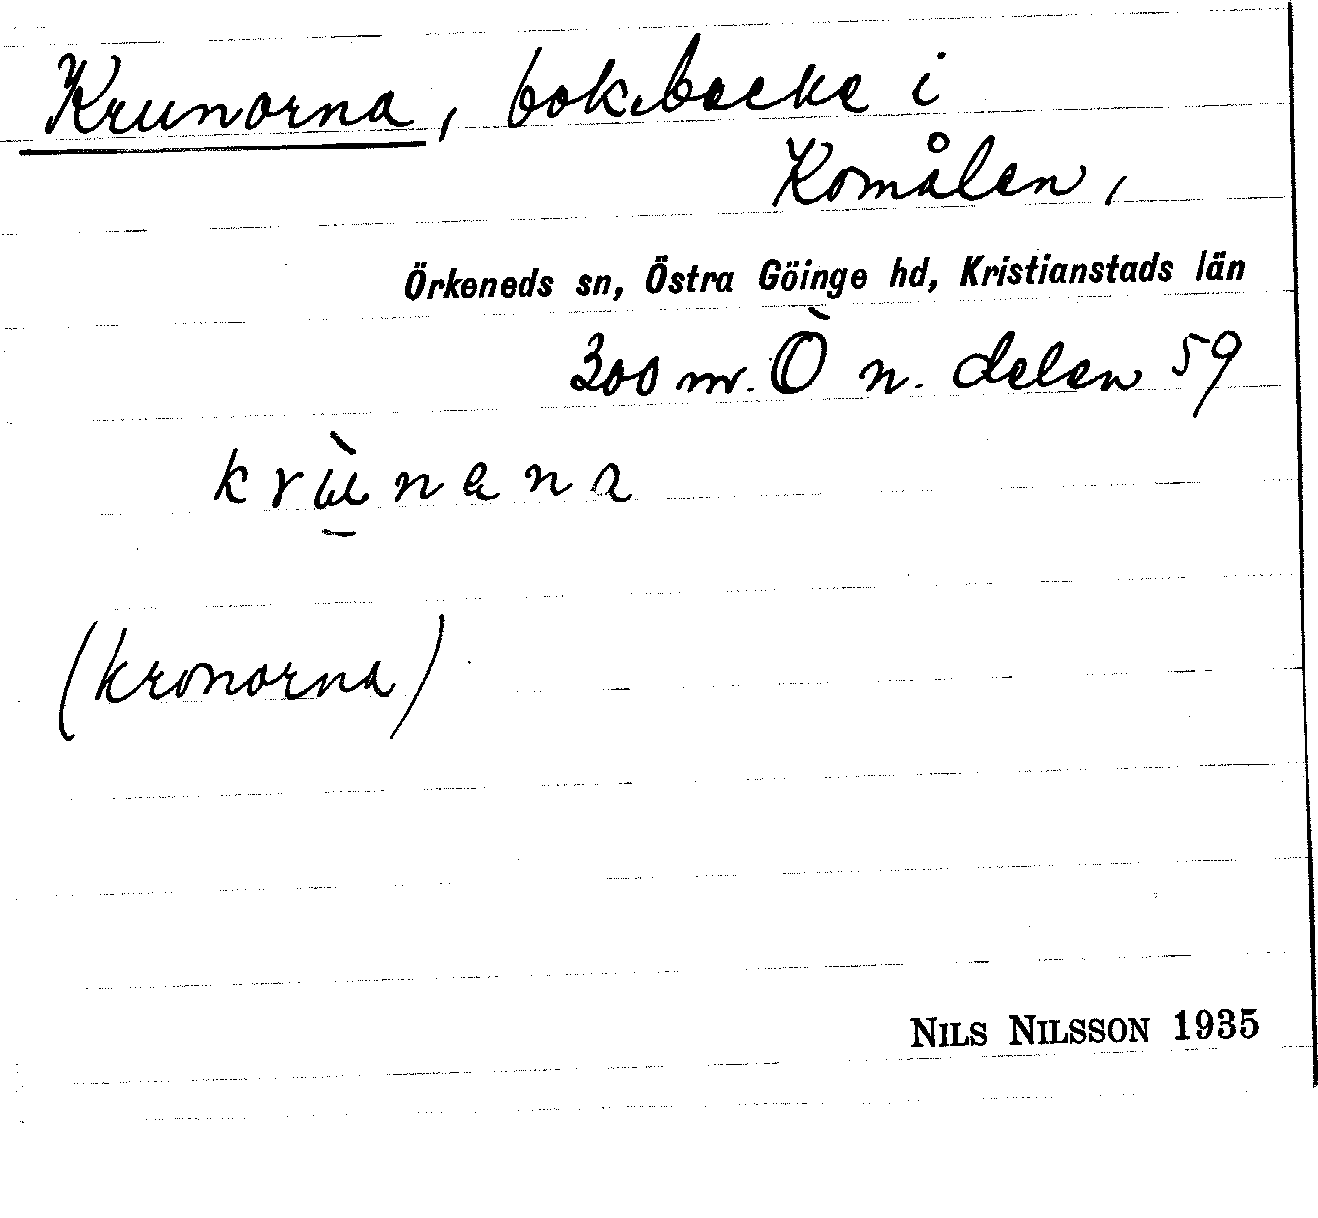 Krunorna, bokbacke i
Komålen,
Örkeneds sn, Östra Göinge hd, Kristianstads län
300 m. Ö n. delen 59
krù̱nana
(kronorna)
NILS NILSSON 1935